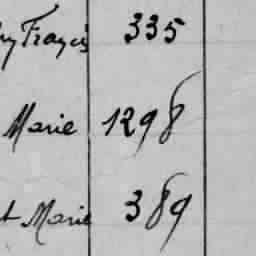 ny Francis 335
Marie 1298
t Marie 389